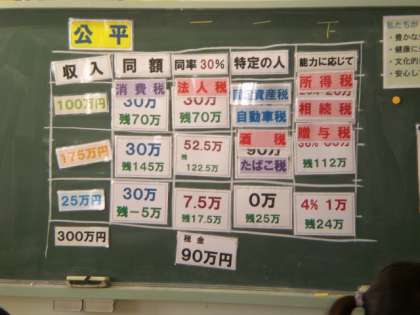 公平
収入 同額 同率30% 特定の人 能力に応じて
消費税 法人税 資産税 所得税
100万円 30万 30万 自動車税 相続税
残70万 残70万
酒税 贈与税
175万円 30万 52.5万 たばこ税
残145万 残122.5万 残112万
25万円 30万 7.5万 0万 4% 1万
残-5万 残17.5万 残25万 残24万
300万円 税金
90万円
私たちが
・豊かな
・健康
・文化的
・安心し